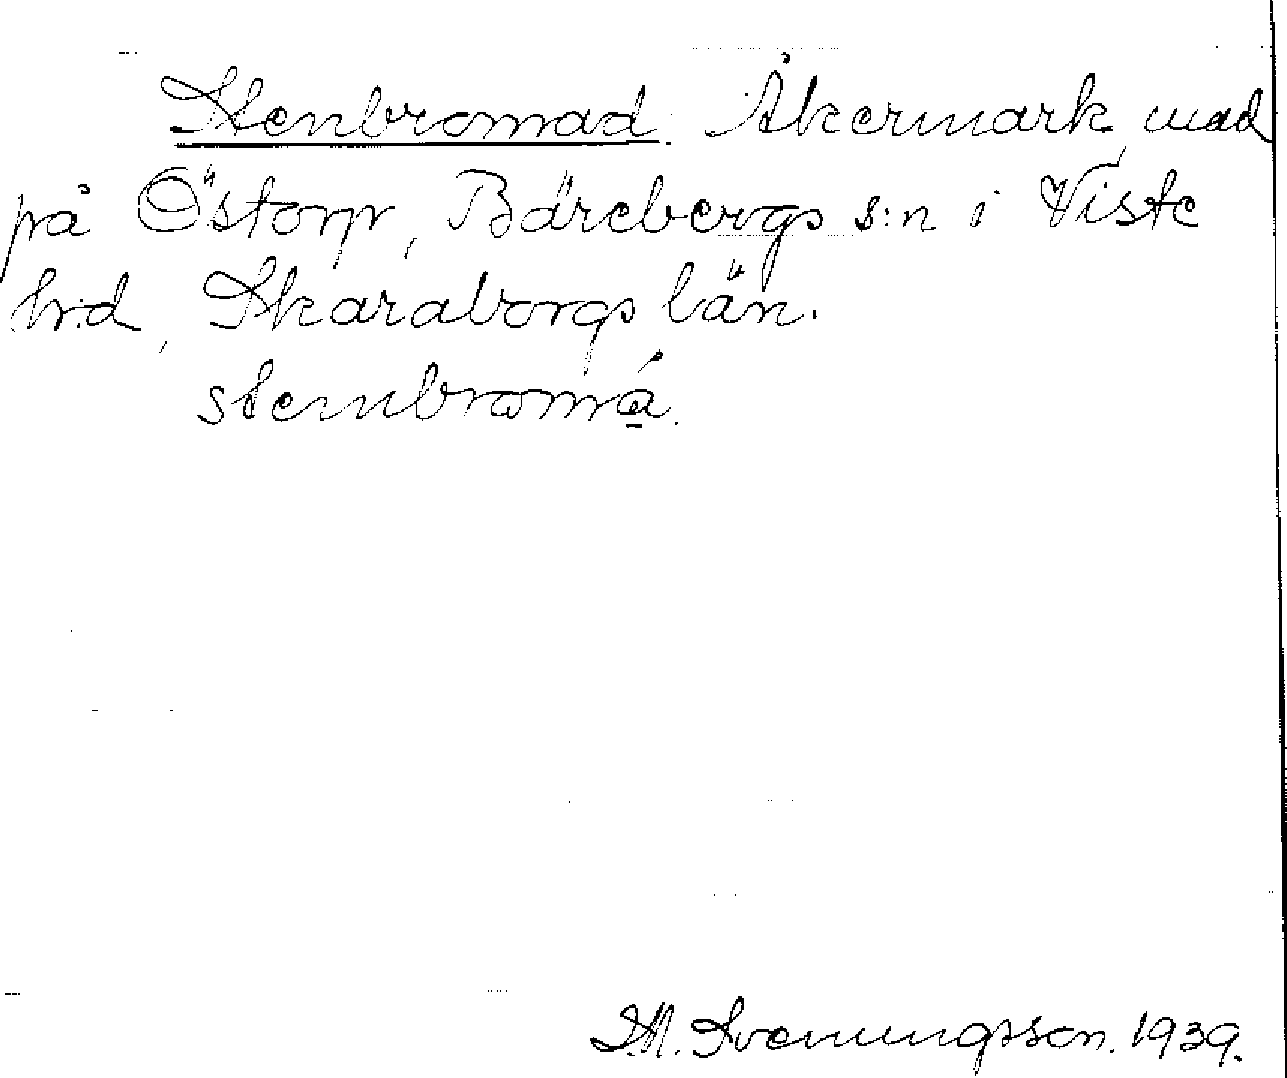 Stenbromad. Åkermark, mad
på Östorp, Bärebergs s:n i Viste
h:d, Skaraborgs län.
stembromá.
S.M. Svenungsson. 1939.